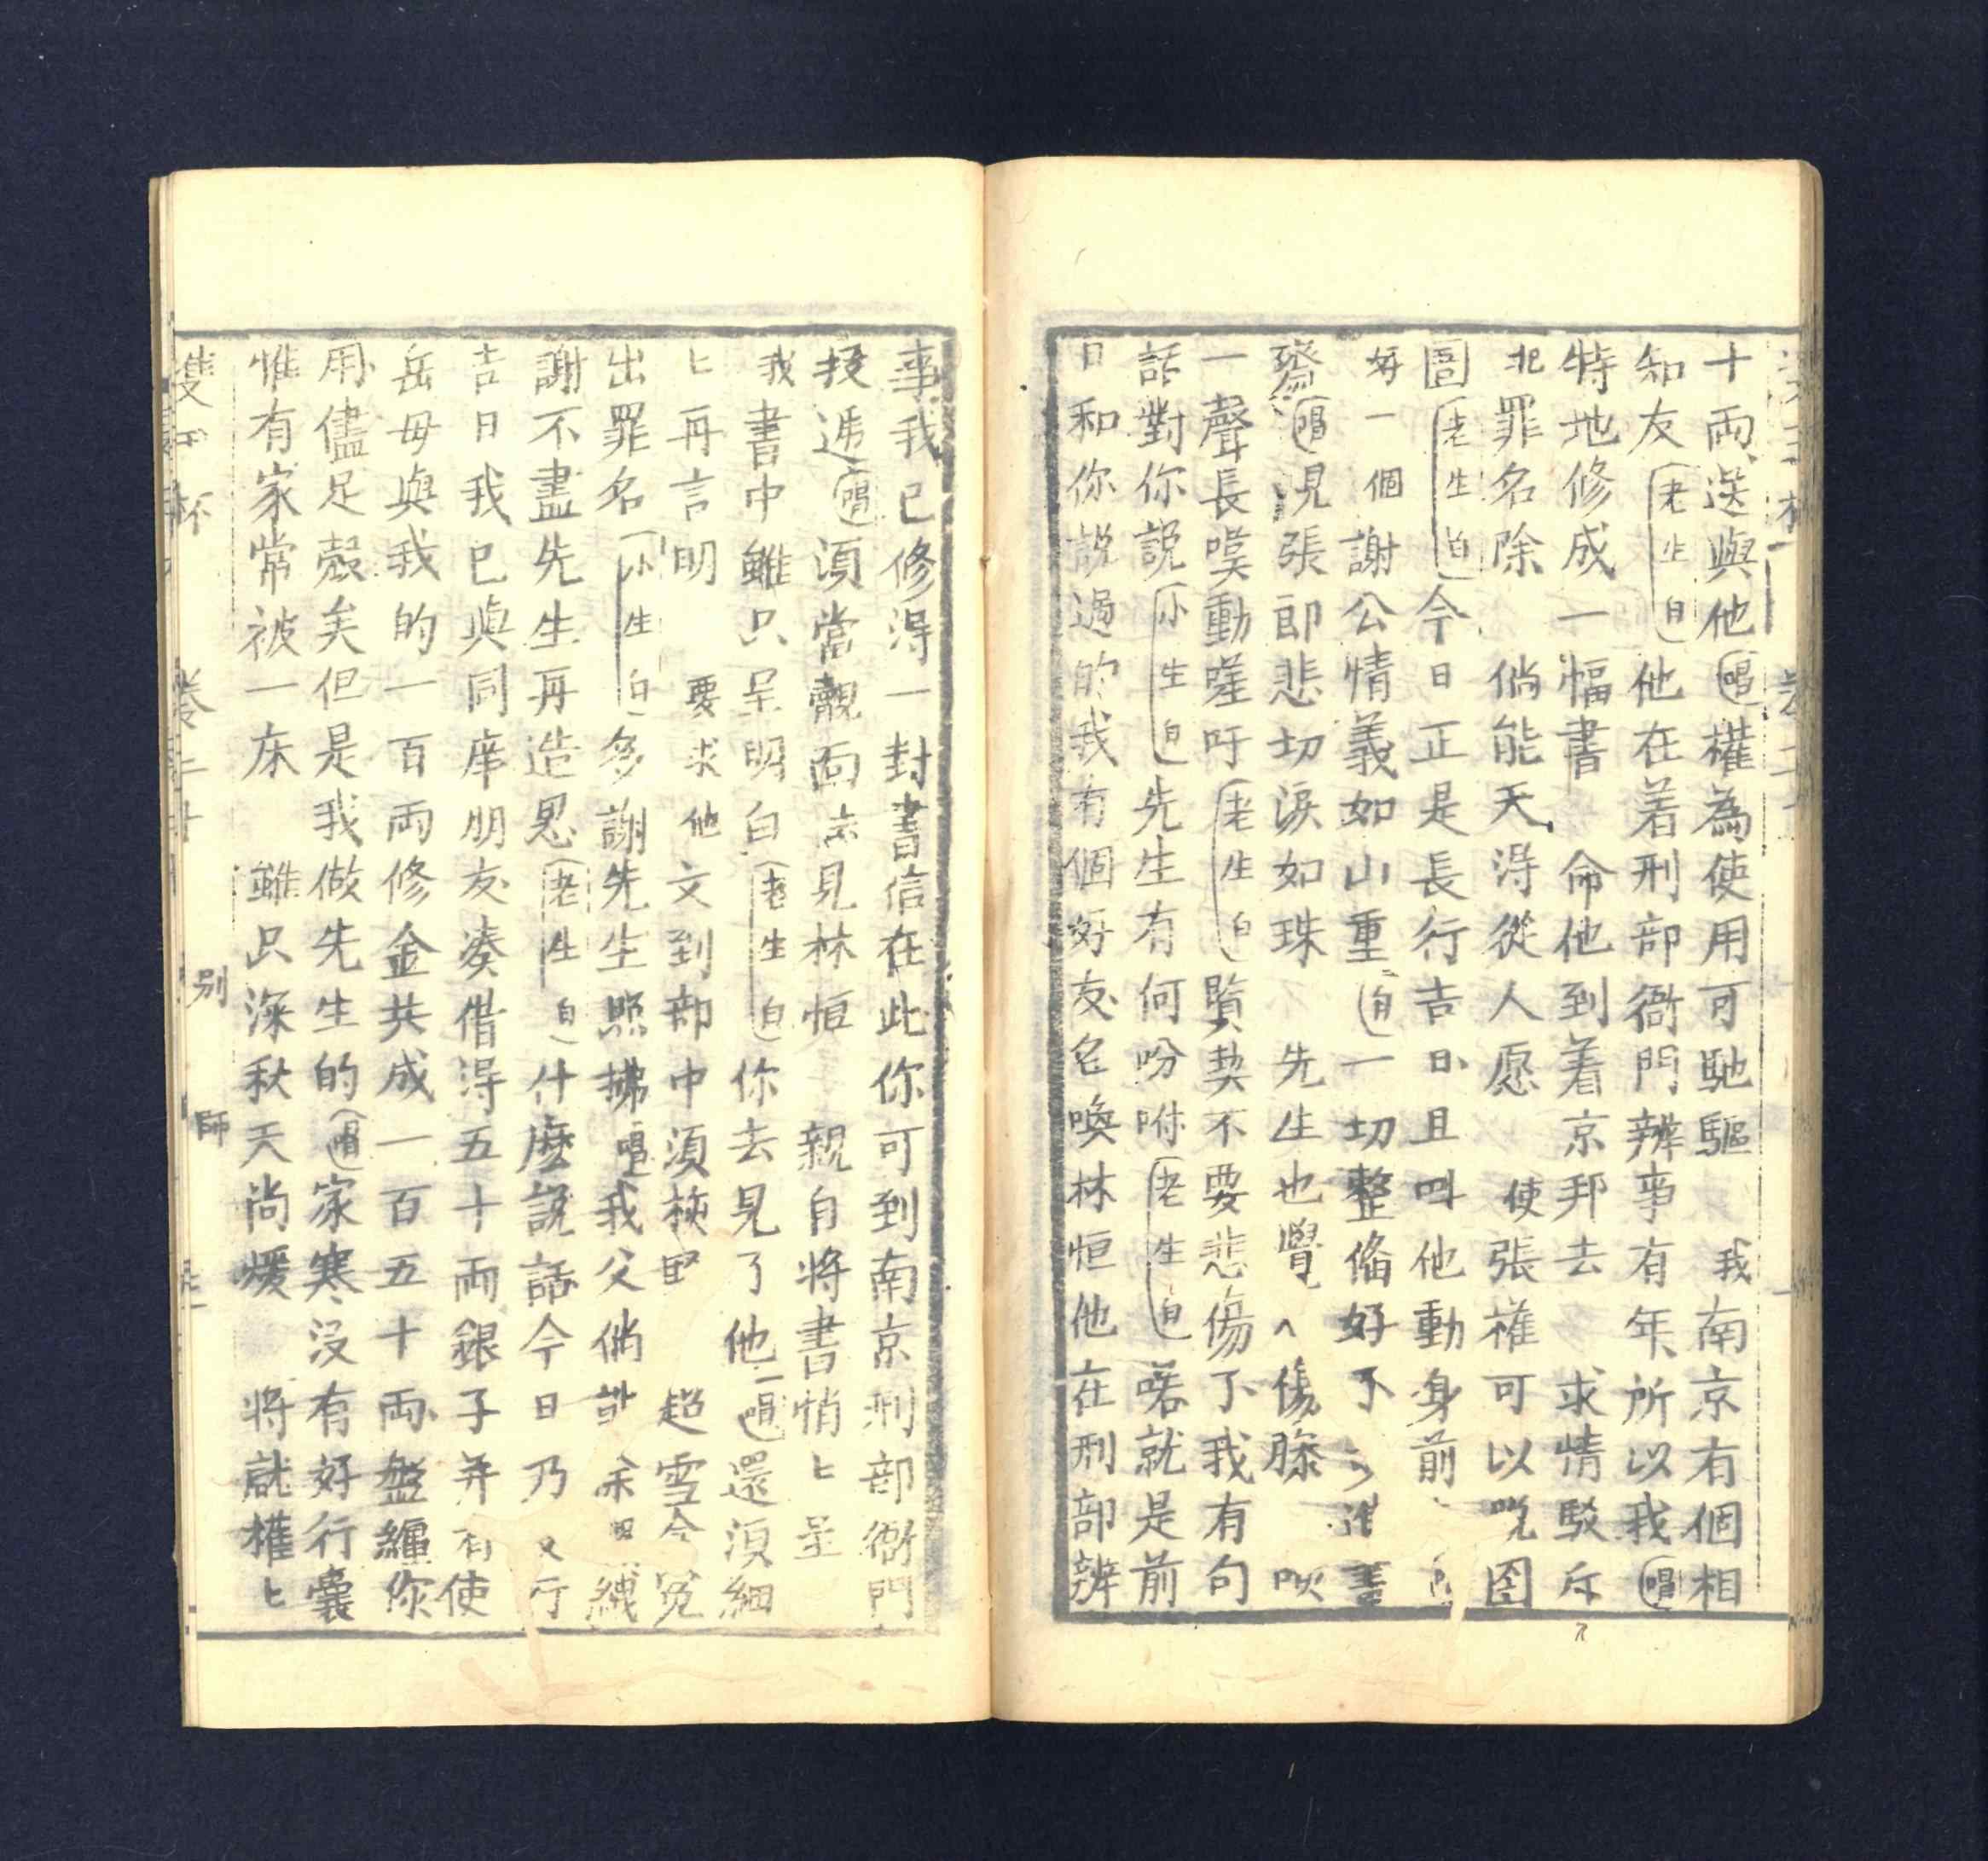 十兩送與他(唱)權為使用可馳驅　我南京有個相
知友(老生白)他在着刑部衙門辨事有年所以我(唱)
特地修成一幅書　命他到着京邦去　求情駁斥
犯罪名除　倘能天淂從人愿　使張權可以脫囹
圄(老生白)今日正是長行吉日且叫他動身前
好一個謝公情義如山重(白)一切整俻好了
(唱)見張郎悲切淚如珠　先生也覺　傷
一聲長嘆動嗟吁(老生白)賢契不要悲傷了我有句
話對你説(小生白)先生有何吩咐(老生白)喏就是前
日和你説過的我有個好友名喚林恒他在刑部辨
事我已修淂一封書信在此你可到南京刑部衙門
投逓(唱)須當覿面去見林恒　親自將書悄〻呈
我書中雖只呈明白(老生白)你去見了他(唱)還須細
〻再言明　要求他文到部中須　超雪令冤
出罪名(小生白)多謝先生照拂(唱)我父倘
謝不盡先生再造恩(老生白)什麽説話今日乃
吉日我已與同庠朋友凑借淂五十兩銀子并有使
岳母與我的一百兩修金共成一百五十兩盤纏你
用儘足彀矣但是我做先生的(唱)家寒沒有好行囊
惟有家常被一床　雖只深秋天尚煖　將就權〻
雙　杯　卷二十　別　師